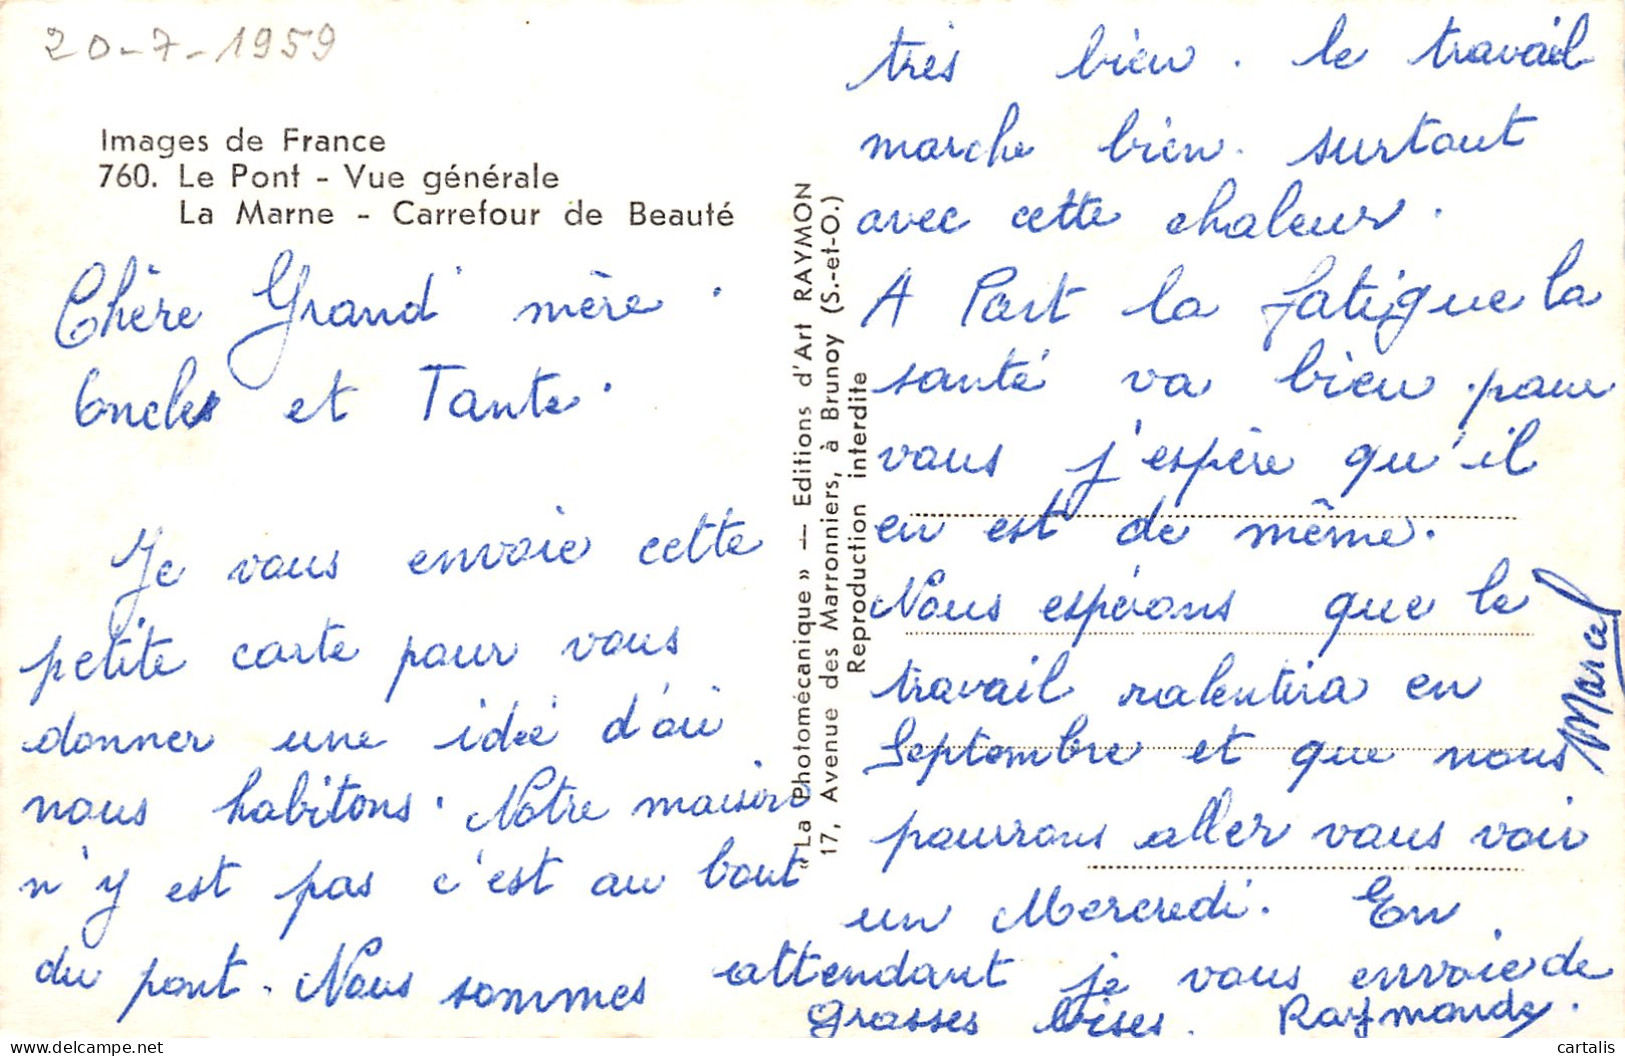 20-7-1959
Images de France
760. Le Pont - Vue générale
La Marne - Carrefour de Beauté
Chère Grand' mère.
Oncles et Tante.
Je vous envoie cette
petite carte pour vous
donner une idée d'où
nous habitons. Notre maison
n'y est pas c'est au bout
du pont. Nous sommes
très bien. le travail
marche bien. surtout
avec cette chaleur.
A Part la fatigue la
santé va bien. pour
vous j'espère qu'il
en est de même.
Nous espérons que le
travail ralentira en
Septembre et que nous
pourrons aller vous voir
un Mercredi. En
attendant je vous envoie de
grosses bises. Raymonde.
Marcel
"La Photomécanique" — Editions d'Art RAYMON
17, Avenue des Marronniers, à Brunoy (S.-et-O.)
Reproduction interdite
cartalis
delcampe.net